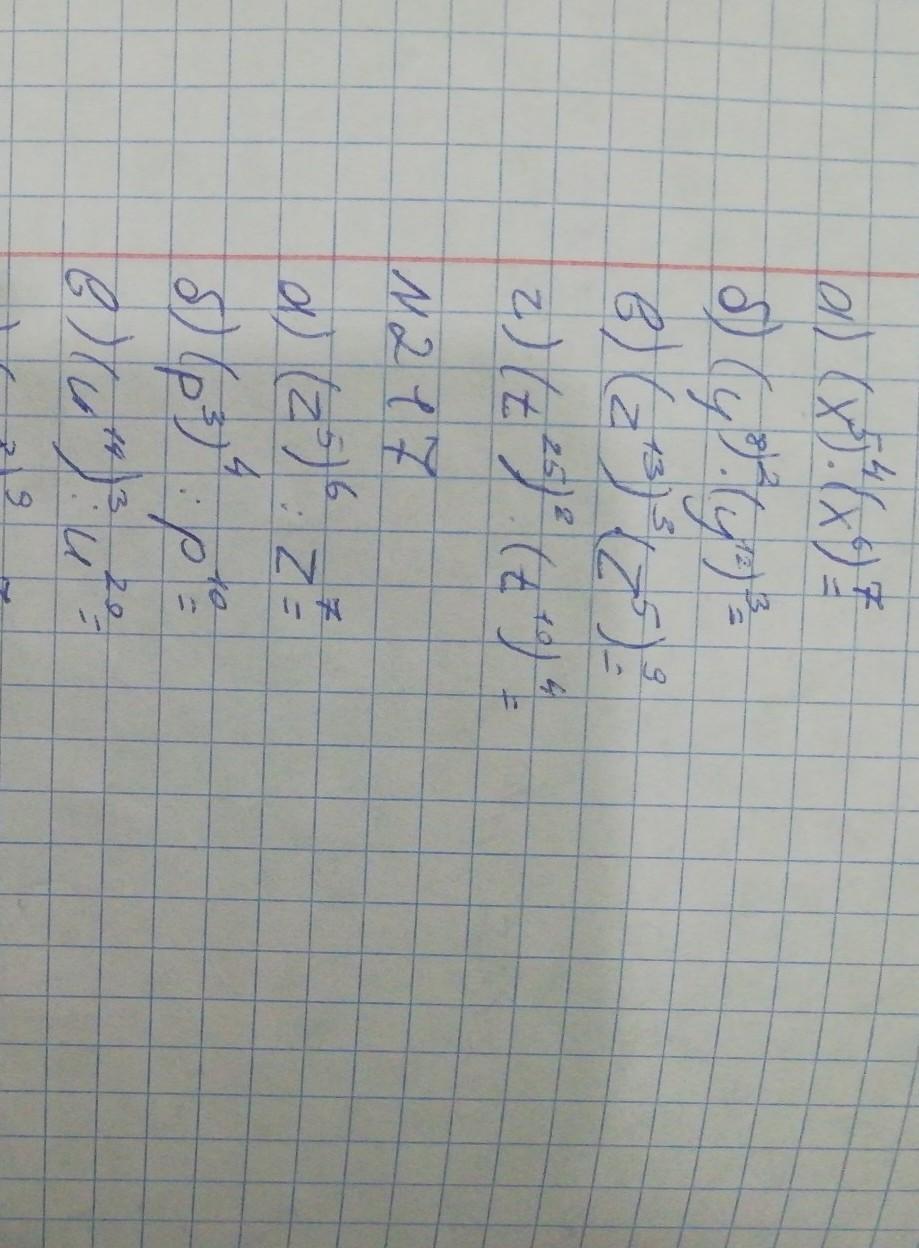 а) (x⁵)⁴·(x⁶)⁷=
б) (y⁸)²·(y¹²)³=
в) (z¹³)³·(z⁵)⁹=
г) (t²⁵)²·(t¹⁰)⁴=
N217
а) (z⁵)⁶ : z⁷=
б) (p³)⁴ : p¹⁰=
в) (u¹⁴)³ : u²⁰=